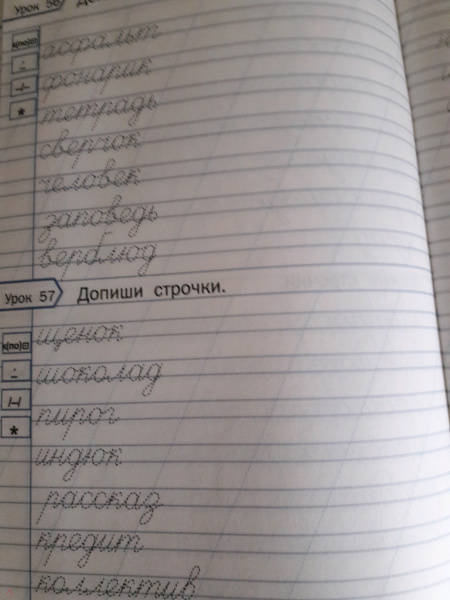 Урок 56
асфальт
фонарик
тетрадь
сверчок
человек
заповедь
верблюд
Урок 57 Допиши строчки.
щенок
шоколад
пирог
индюк
рассказ
кредит
коллектив